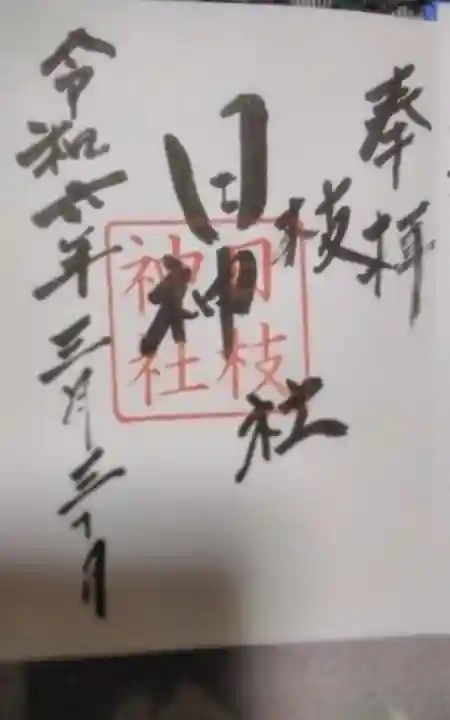 奉拝
日枝神社
日枝神社
令和六年三月三十日